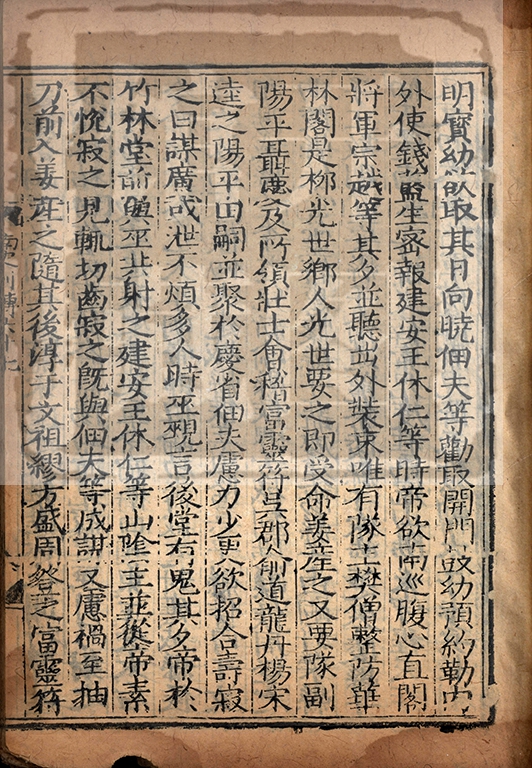 明寶幼欲取其日向曉佃夫等勸取開門鼓幼預約勒內
外使錢藍生密報建安王休仁等時帝欲南巡腹心直閤
將軍宗越等其夕並聽出外裝束唯有隊主樊僧整防華
林閣是柳光世鄉人光世要之即受命姜産之又要隊副
陽平聶慶及所領壯士會稽富靈符吳郡俞道龍丹楊宋
逵之陽平田嗣並聚於慶省佃夫慮力少更欲招合壽寂
之曰謀廣或泄不煩多人時巫覡言後堂有鬼其夕帝於
竹林堂前與巫共射之建安王休仁等山陰主並從帝素
不悅寂之見輒切齒寂之既與佃夫等成謀又慮禍至抽
刀前入姜産之隨其後淳于文祖繆方盛周登之富靈符